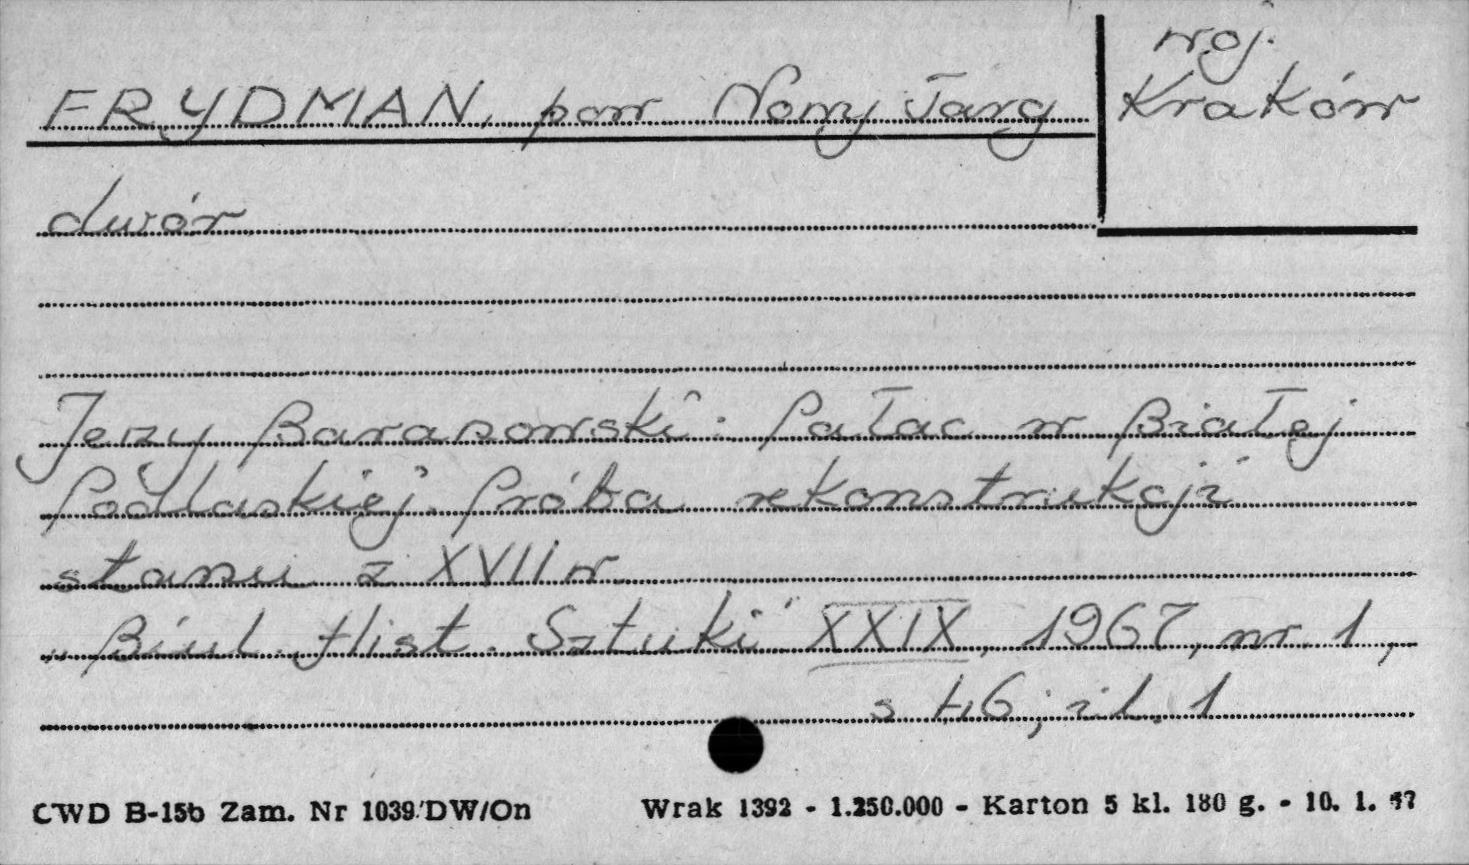 woj.
FRYDMAN, pow Nowy Targ
Kraków
dwór
Jerzy Baranowski: Pałac w Białej
Podlaskiej. Próba rekonstrukcji
stanu z XVII w
„Biul. Hist. Sztuki" XXIX, 1967, nr 1,
s 46; il. 1
CWD B-15b Zam. Nr 1039/DW/On
Wrak 1392 - 1.250.000 - Karton 5 kl. 180 g. - 10. 1.